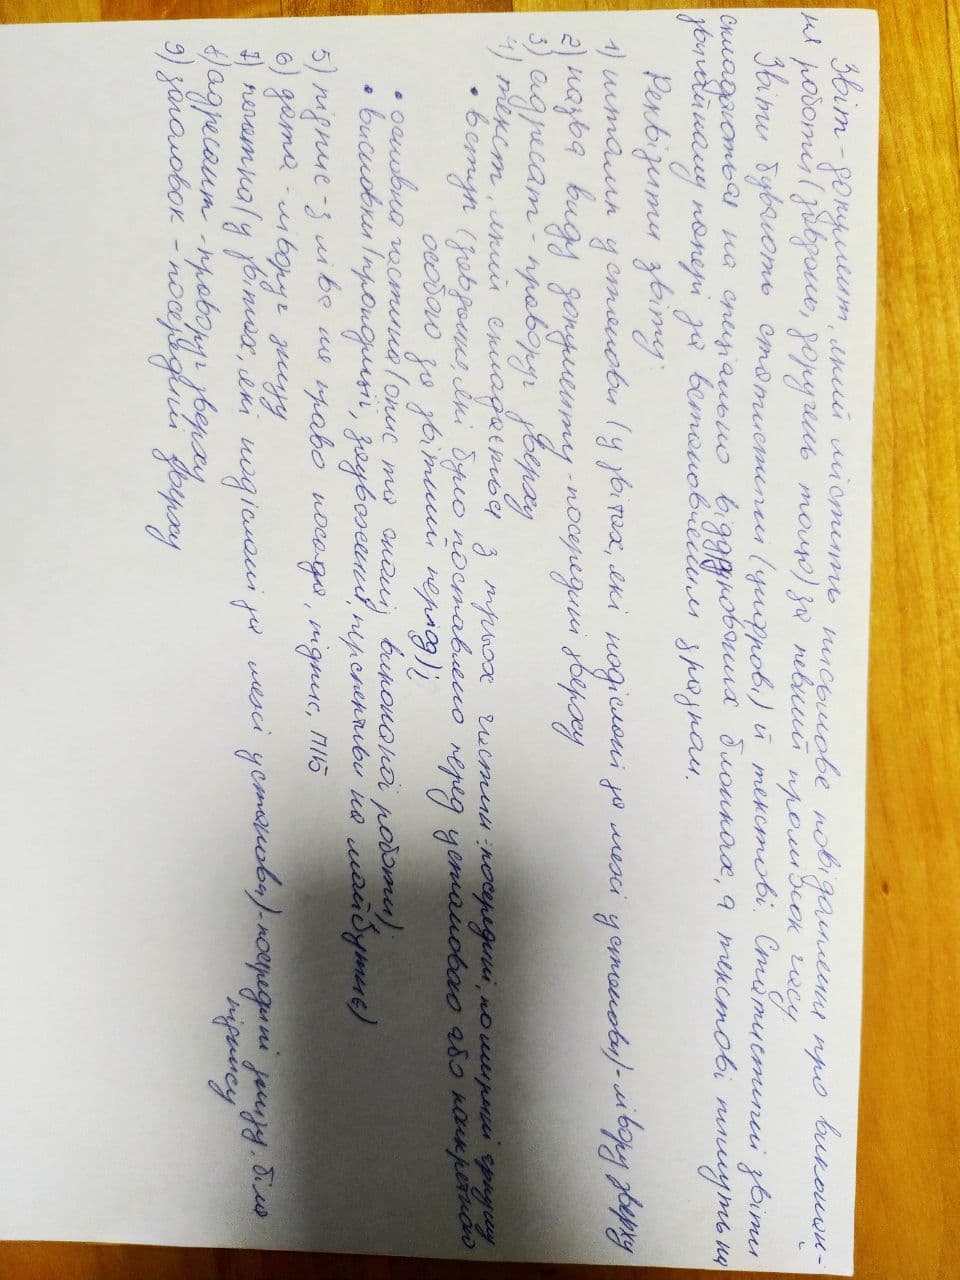 Звіт - документ, який містить письмове повідомлення про виконан-
ня роботи (завдань, доручень тощо) за певний проміжок часу
Звіти бувають статистичні (цифрові) й текстові. Статистичні звіти
складаються на спеціально віддрукованих бланках, а текстові пишуть на
звичайному папері за встановленим зразком.
Реквізити звіту:
1) штамп установи (у звітах, які надіслані за межі установи) - ліворуч зверху
2) назва виду документу - посередині зверху
3) адресат - праворуч зверху
4) текст, який складається з трьох частин: посередині, по ширині аркушу
• вступ (завдання, які було поставлено перед установою або конкретною
особою за звітний період);
• основна частина (опис та аналіз виконаної роботи);
• висновки (пропозиції, зауваження, перспективи на майбутнє)
5) підпис - з ліва на право посада, підпис, ПІБ
6) дата - ліворуч знизу
7) печатка (у звітах, які надіслані за межі установи) - посередині знизу, біля
підпису
8) адресант - праворуч зверху
9) заголовок - посередині зверху